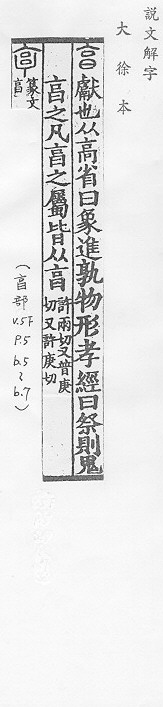 説文解字
大徐本
亯獻也从高省曰象進孰物形孝經曰祭則鬼
亯之凡亯之屬皆从亯許兩切又普庚切又許庚切
篆文亯
(亯部
V.5下
P.5
b.5
~
b.7)